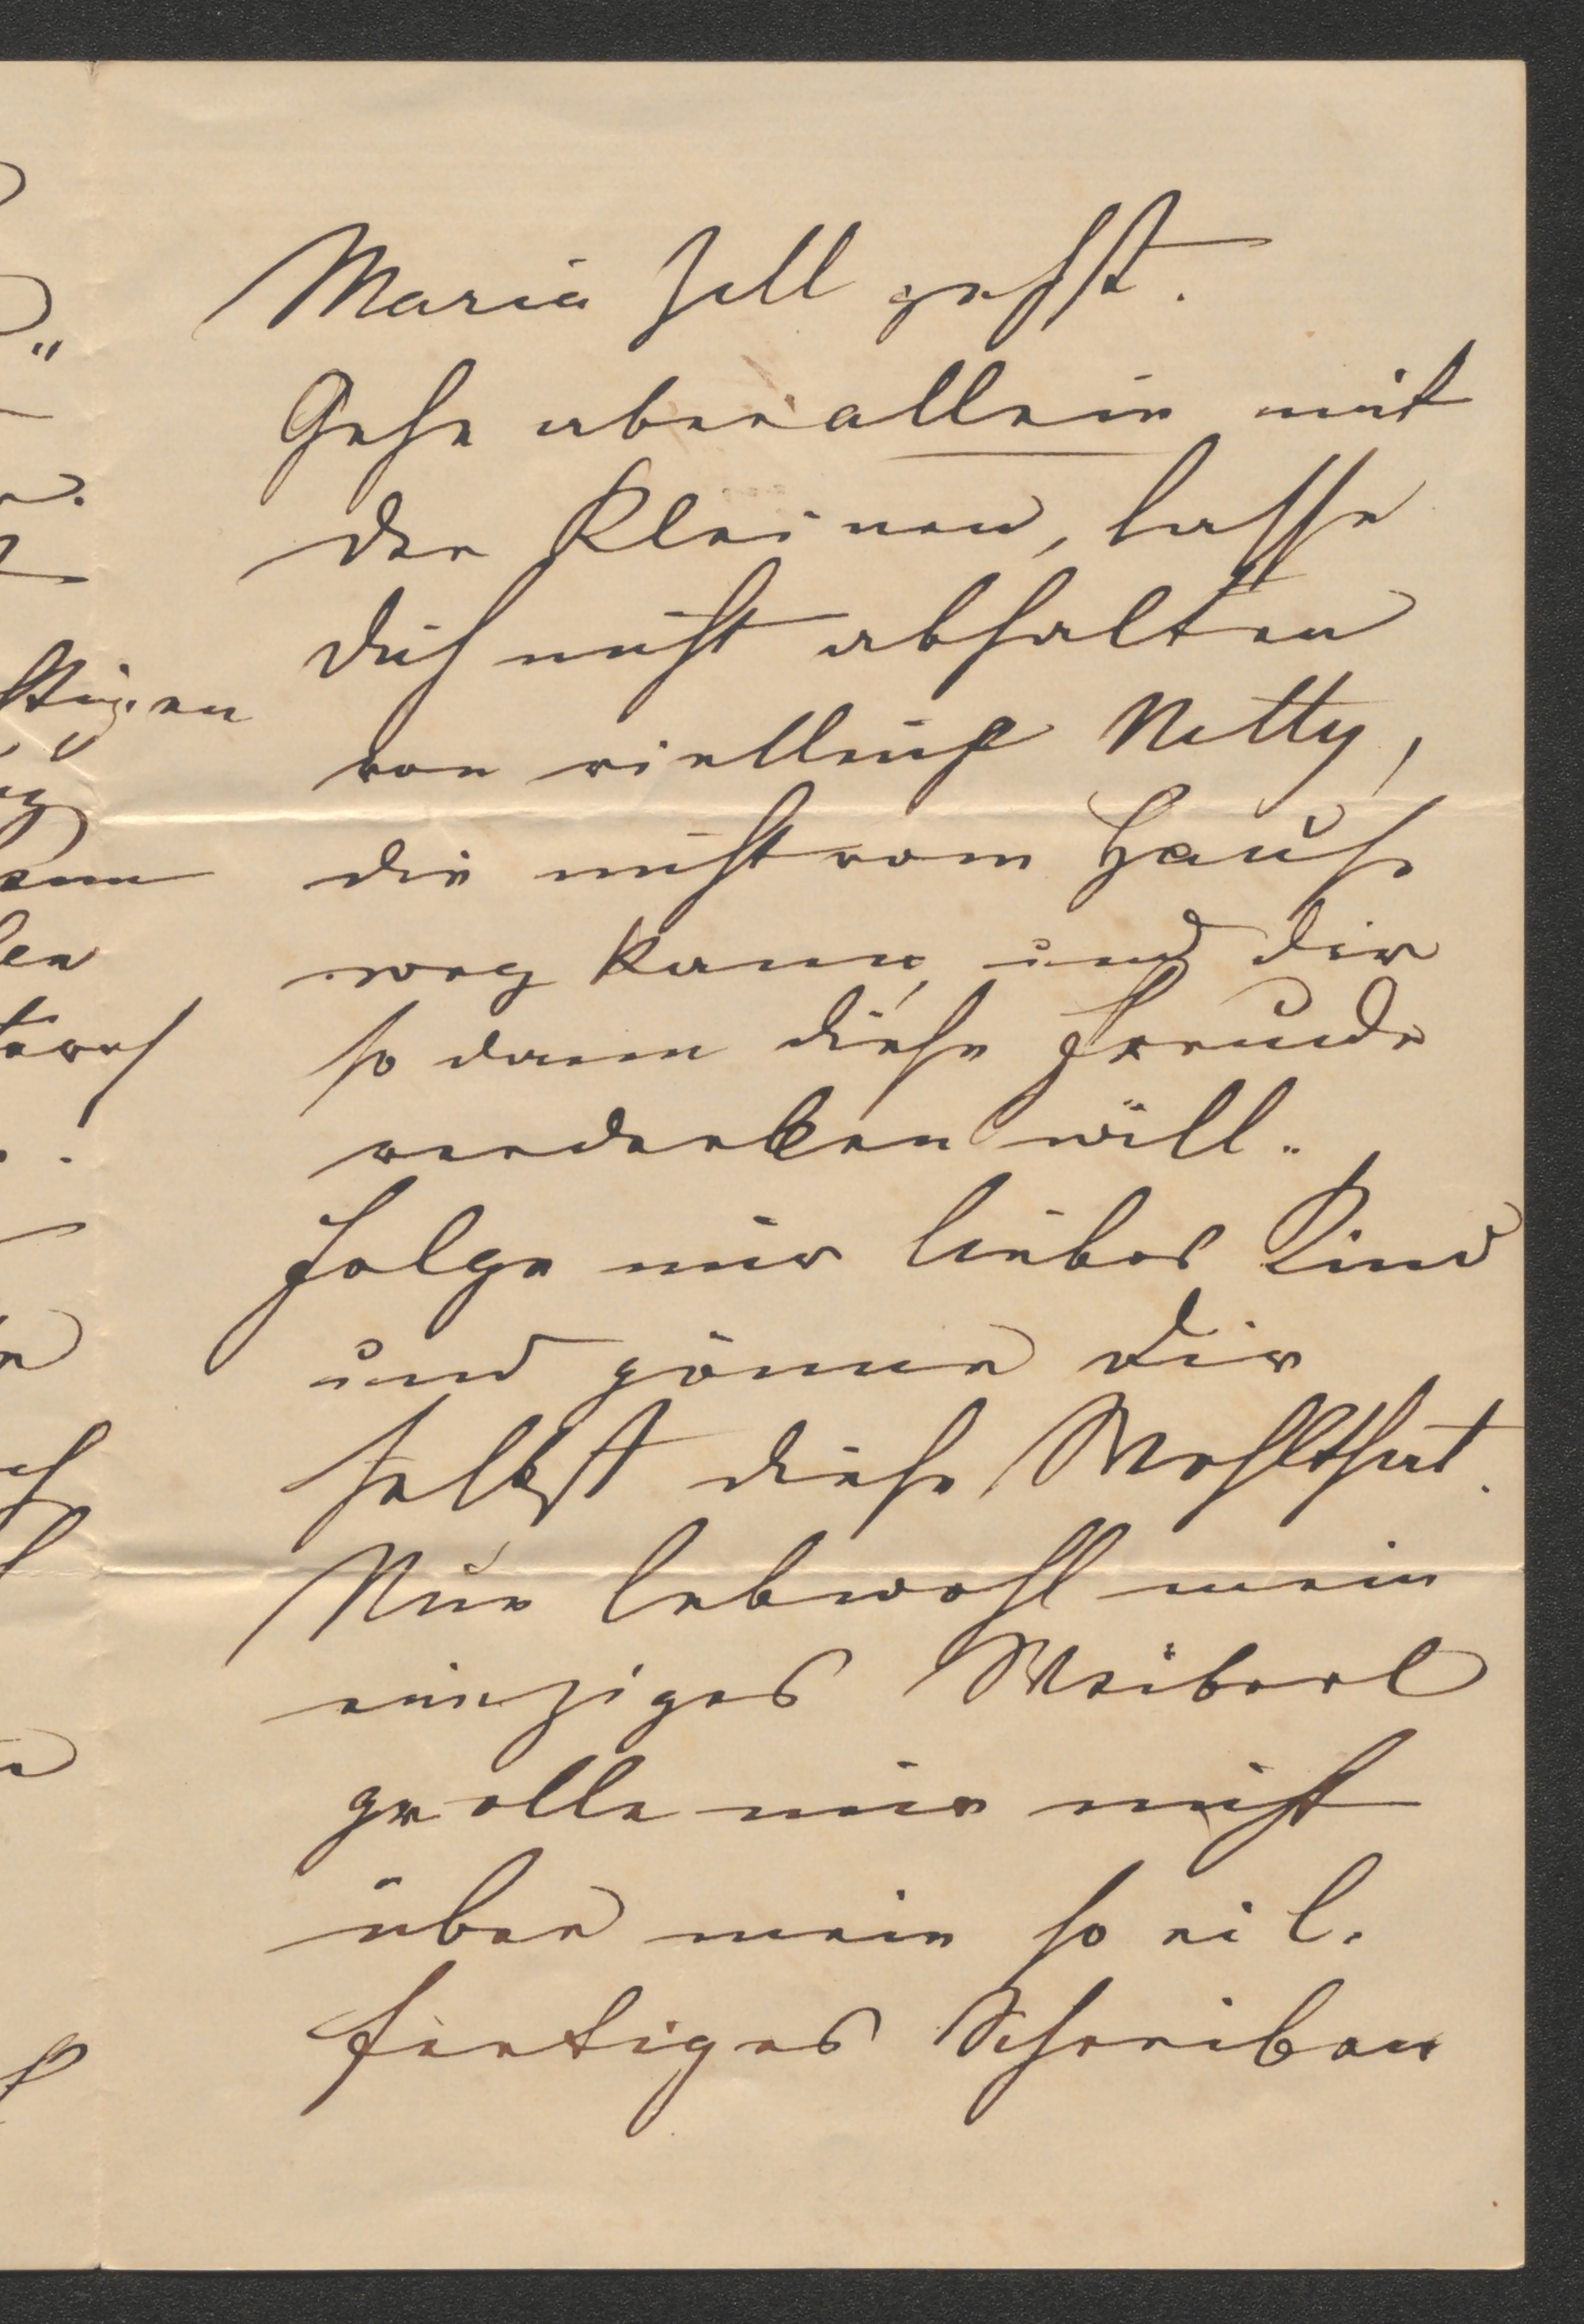 Maria Zell gehst.
Gehe aber allein mit
der Kleinen, lasse
dich nicht abhalten
von vielleicht Netty,
die nicht vom Hause
weg kann, und dir
so dann diese Freude
verderben will.
Folge mir liebes Kind
und gönne Dir
selbst diese Wohlthat.
Nun lebwohl mein
einziges Weiberl
grolle mir nicht
über mein so eil.
fertiges Schreiben